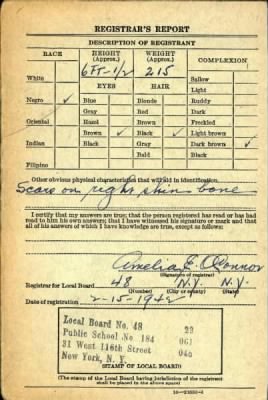 REGISTRAR'S REPORT
DESCRIPTION OF REGISTRANT
RACE
HEIGHT (Approx.)
WEIGHT (Approx.)
COMPLEXION
6 FT-1/2
215
White
Sallow
EYES
HAIR
Light
Negro ✓
Blue
Blonde
Ruddy
Gray
Red
Dark
Oriental
Hazel
Brown
Freckled
Brown ✓
Black ✓
Light brown ✓
Indian
Black
Gray
Dark brown
Bald
Black
Filipino
Other obvious physical characteristics that will aid in identification
Scars on right shin bone
I certify that my answers are true; that the person registered has read or has had
read to him his own answers; that I have witnessed his signature or mark and that
all of his answers of which I have knowledge are true, except as follows:
Amelia E. O'Connor
(Signature of registrar)
Registrar for Local Board 48 N.Y. N.Y.
(Number) (City or county) (State)
Date of registration 2-15-1942
Local Board No. 48 23
Public School No 184 061
31 West 116th Street 048
New York, N. Y.
(STAMP OF LOCAL BOARD)
(The stamp of the Local Board having jurisdiction of the registrant
shall be placed in the above space)